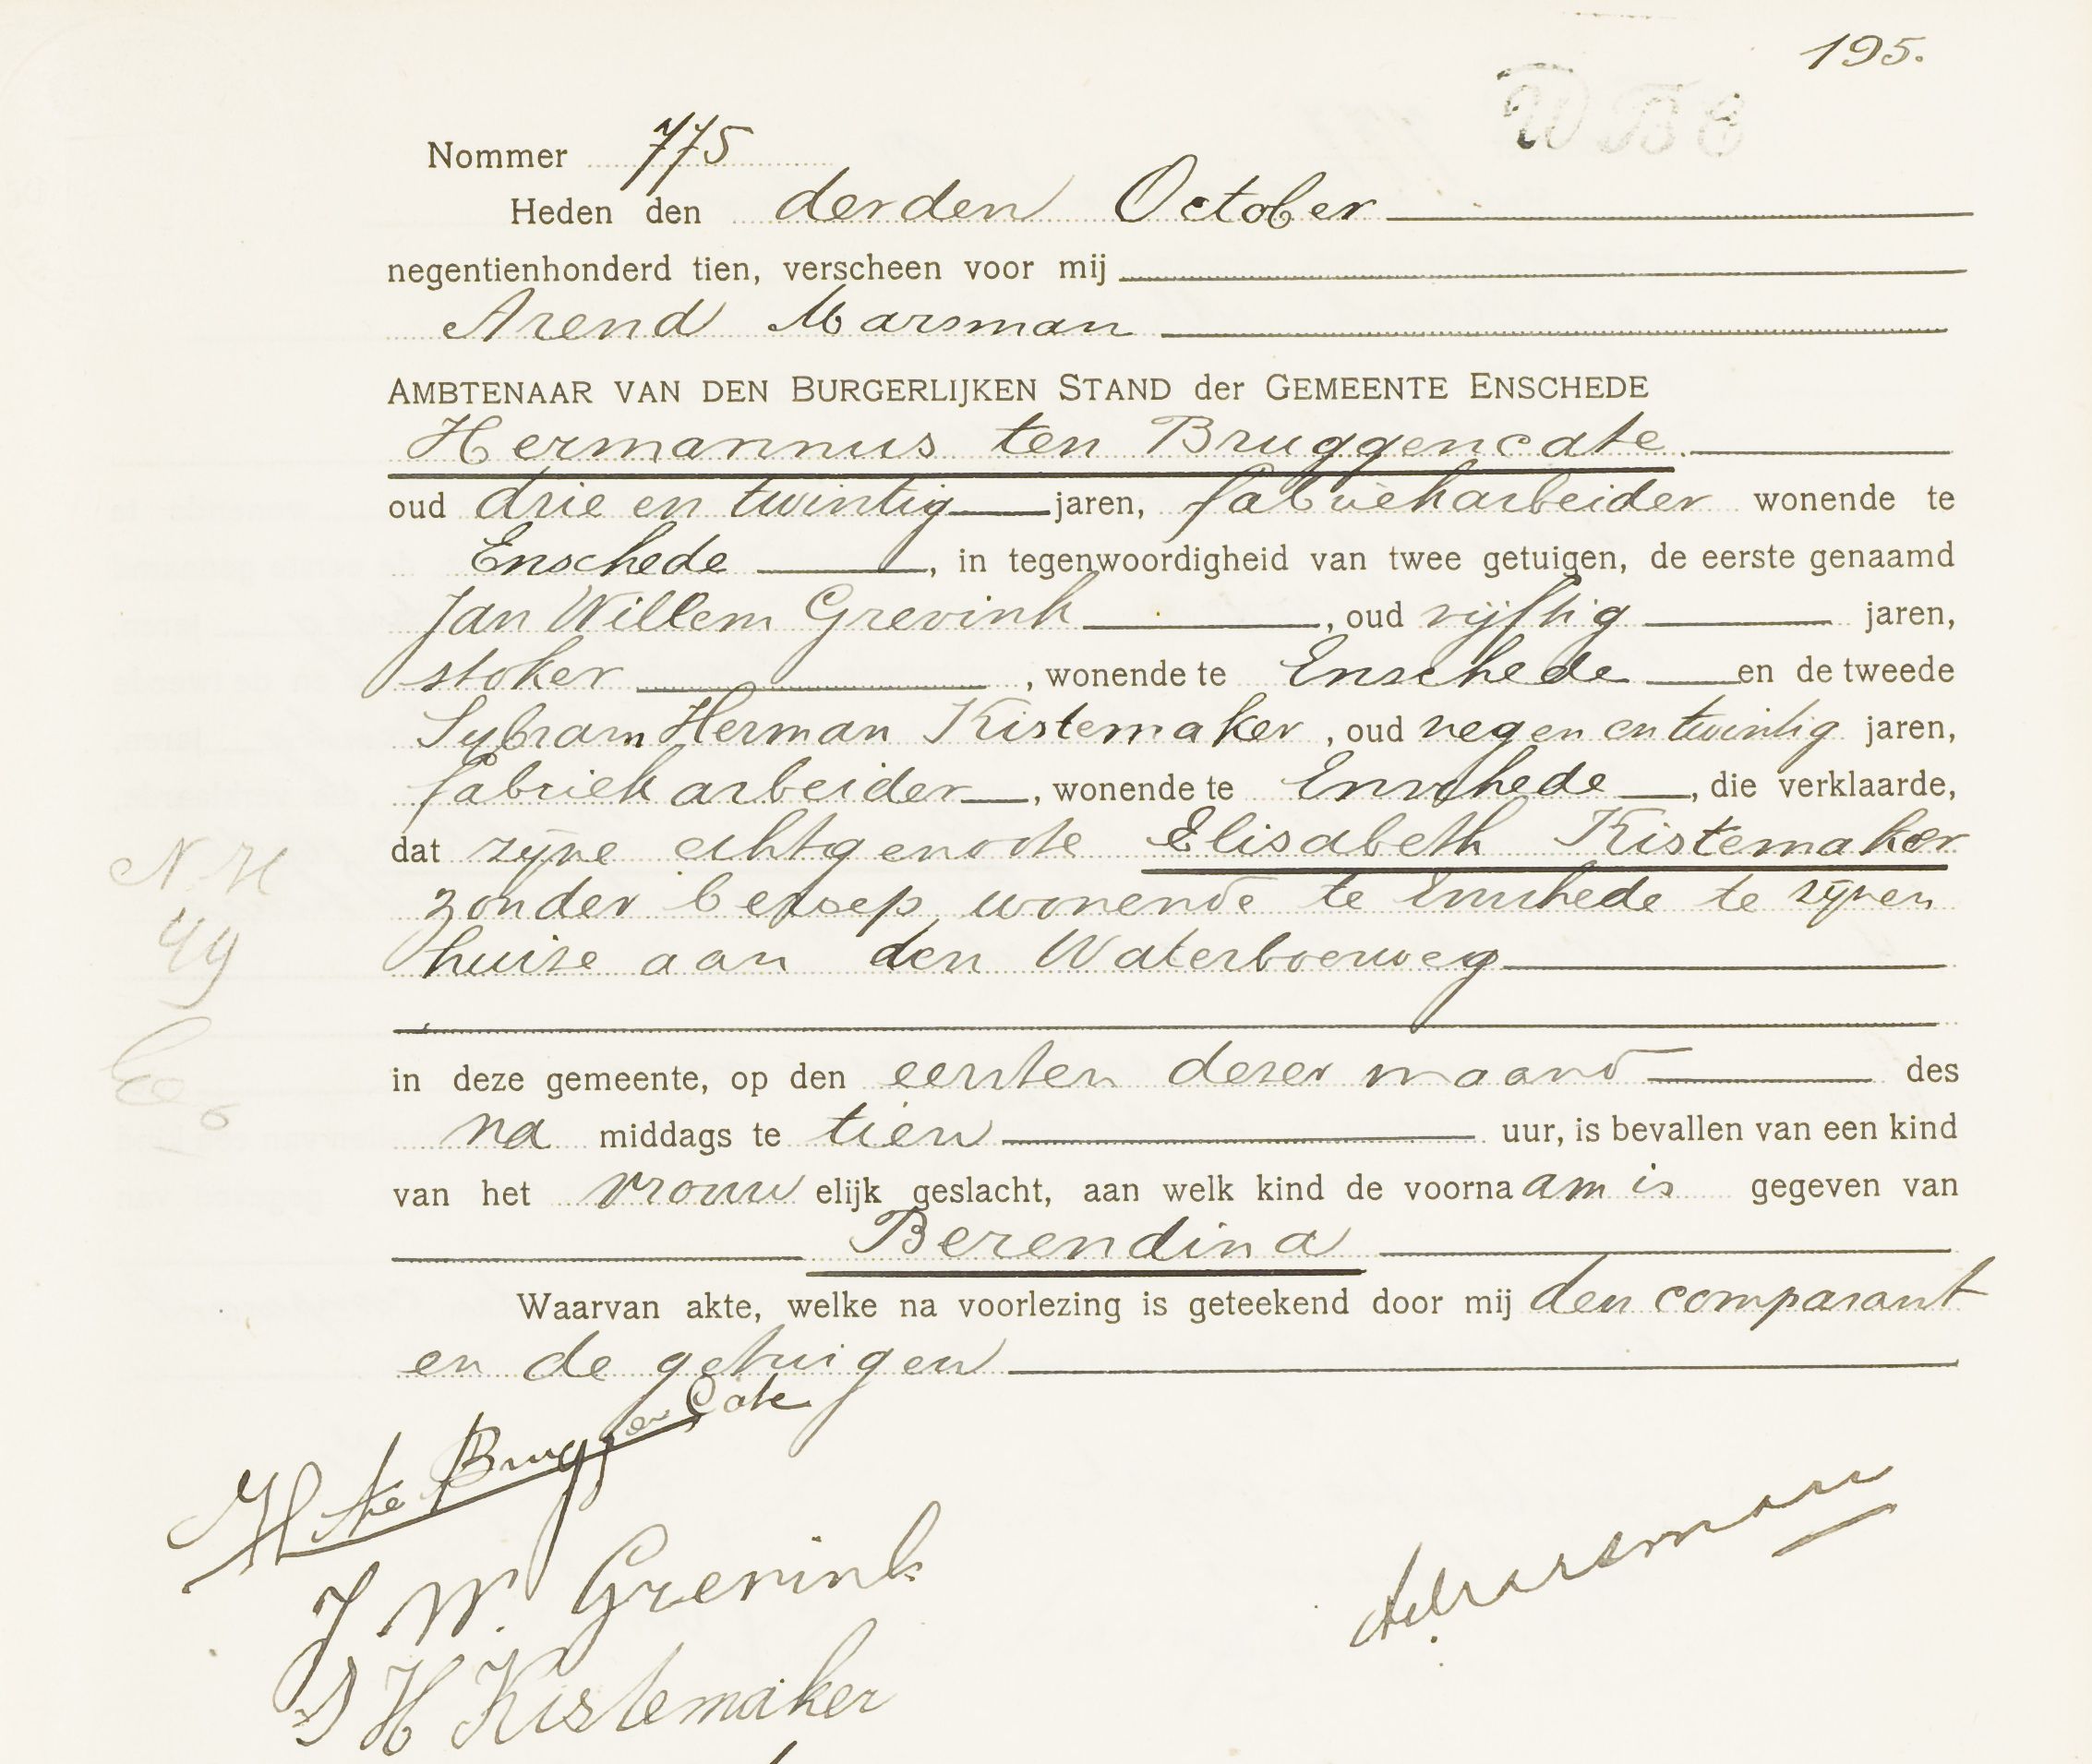 195.
W B C
Nommer 775
Heden den derden October
negentienhonderd tien, verscheen voor mij
Arend Marsman
AMBTENAAR VAN DEN BURGERLIJKEN STAND der GEMEENTE ENSCHEDE
Hermannus ten Bruggencate
oud drie en twintig jaren, fabriekarbeider wonende te
Enschede, in tegenwoordigheid van twee getuigen, de eerste genaamd
Jan Willem Grevink, oud vijftig jaren,
stoker, wonende te Enschede en de tweede
Sybram Herman Kistemaker, oud negen en twintig jaren,
fabriekarbeider, wonende te Enschede, die verklaarde,
dat zijne echtgenoote Elisabeth Kistemaker
zonder beroep, wonende te Enschede te zijnen
huize aan den Waterboerweg
in deze gemeente, op den eersten dezer maand des
na middags te tien uur, is bevallen van een kind
van het vrouwelijk geslacht, aan welk kind de voornaam is gegeven van
Berendina
Waarvan akte, welke na voorlezing is geteekend door mij den comparant
en de getuigen
N.H
49
H te Bruggen Cate
J W. Grevink
S H Kistemaker
AMarsman